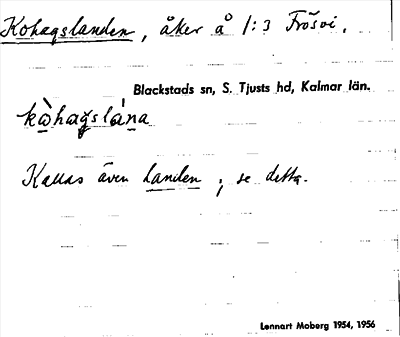 Kohagslanden, åker å 1:3 Frösvi.
Blackstads sn, S. Tjusts hd, Kalmar län.
kòhagslána
Kallas även Landen ; se detta.
Lennart Moberg 1954, 1956